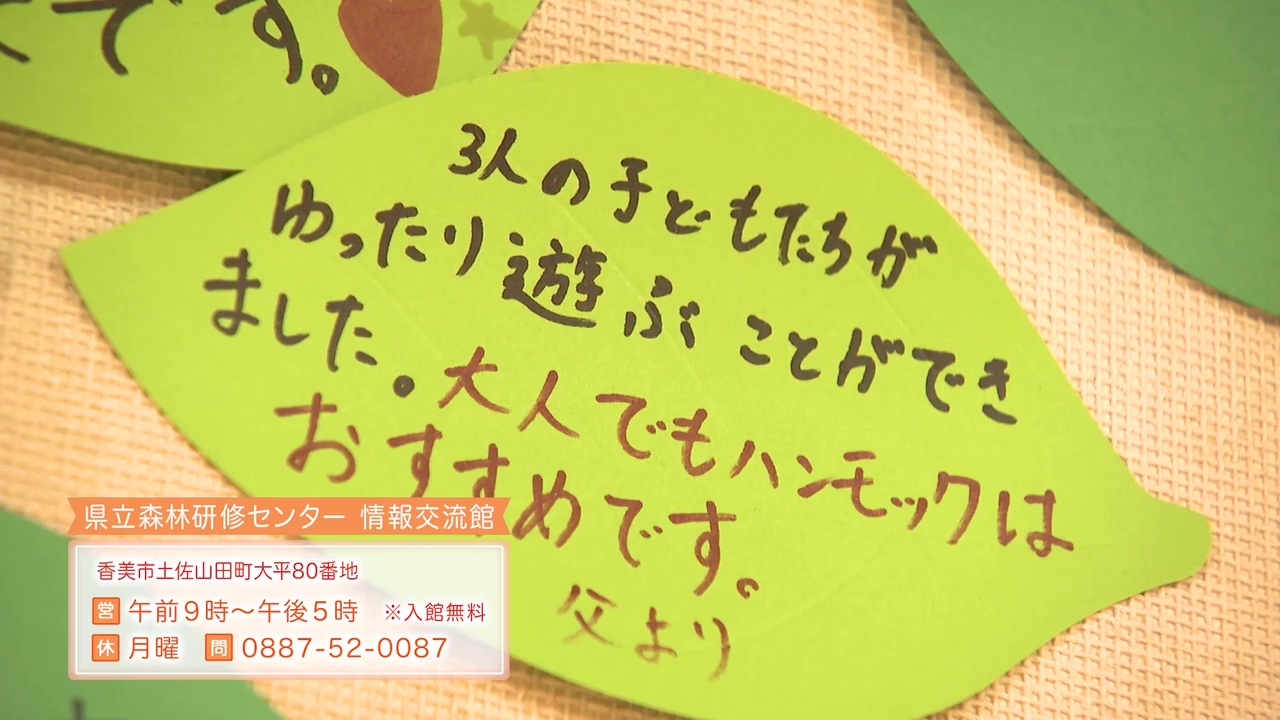 です。
3人の子どもたちが
ゆったり遊ぶことができ
ました。大人でもハンモックは
おすすめです。
父より
県立森林研修センター 情報交流館
香美市土佐山田町大平80番地
営 午前9時～午後5時 ※入館無料
休 月曜 問 0887-52-0087